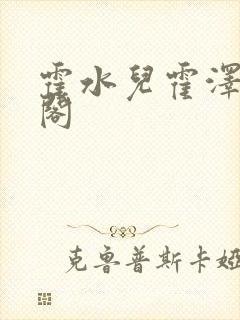 霍水兒霍澤
閣
克魯普斯卡婭